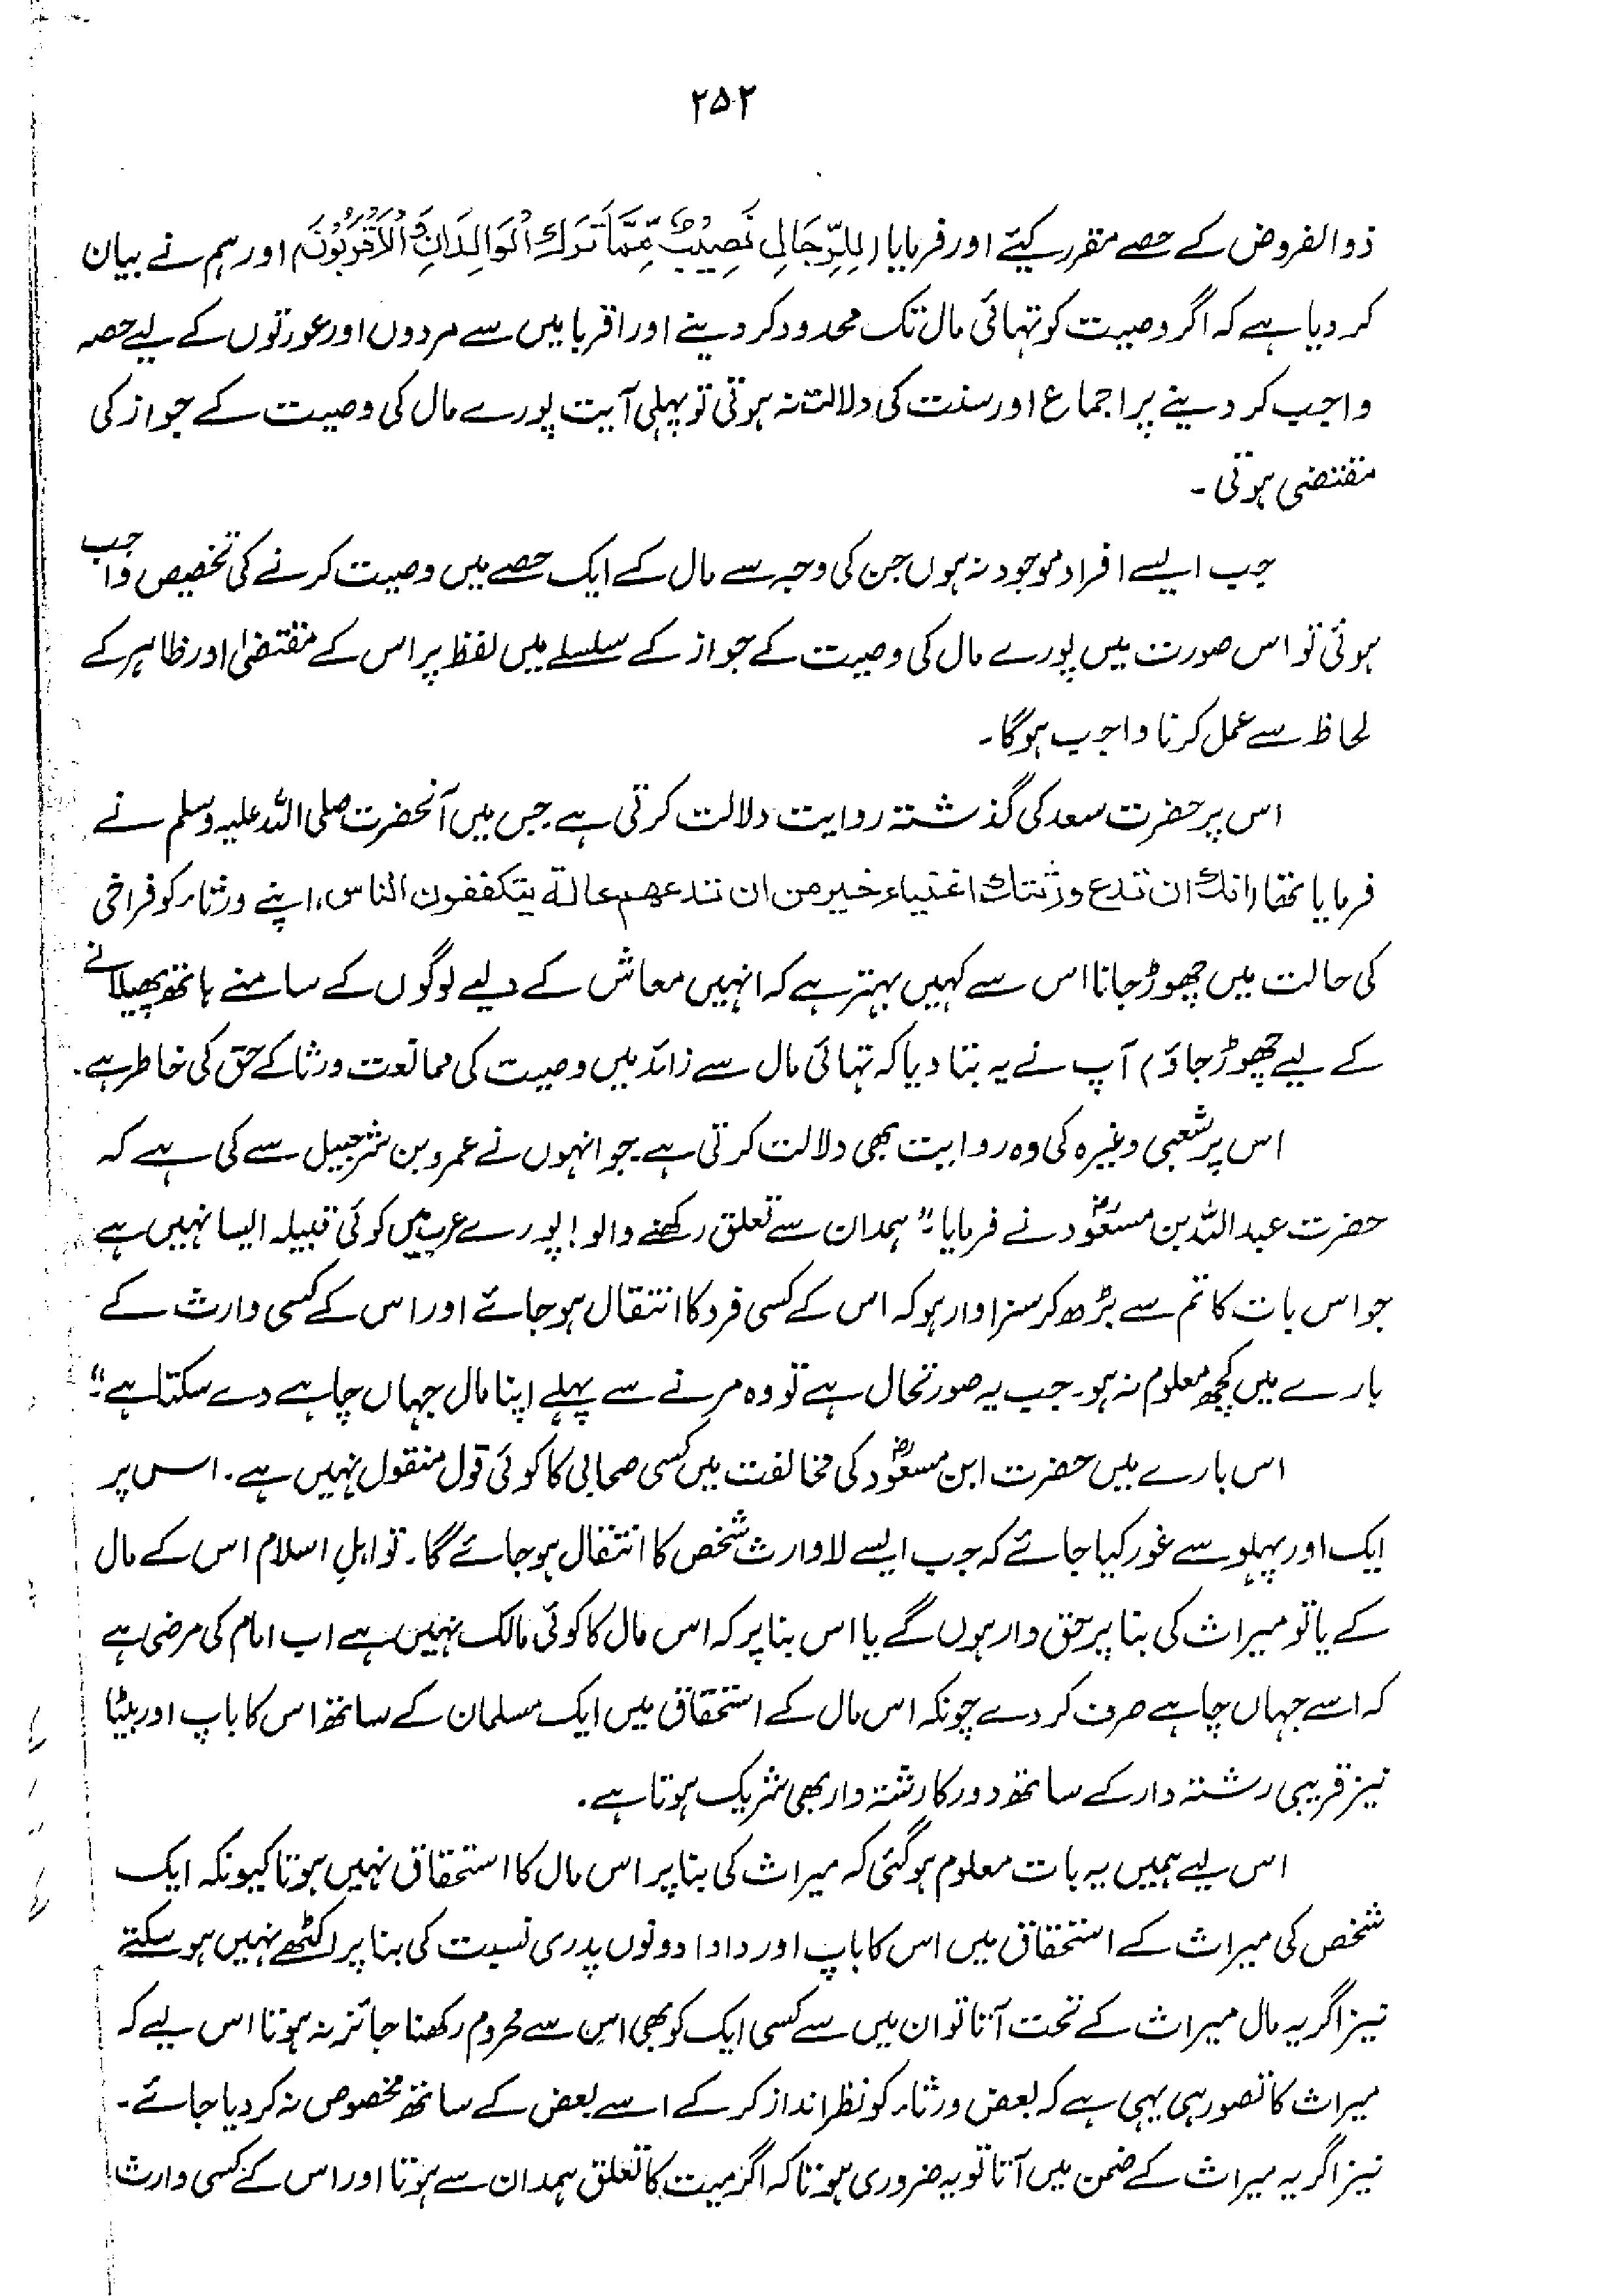 ۲۵۲
ذوالفروض کے حصے مقرر کیئے اور فرمایا (لِلرِّجَالِ نَصِيْبٌ مِّمَّا تَرَكَ الْوَالِدَانِ وَالْاَقْرَبُوْنَ) اور ہم نے بیان
کر دیا ہے کہ اگر وصیت کو تہائی مال تک محدود کر دینے اور اقربا میں سے مردوں اور عورتوں کے لیے حصہ
واجب کر دینے پر اجماع اور سنت کی دلالت نہ ہوتی تو پہلی آیت پورے مال کی وصیت کے جواز کی
مقتضی ہوتی۔
جب ایسے افراد موجود نہ ہوں جن کی وجہ سے مال کے ایک حصے میں وصیت کرنے کی تخصیص واجب
ہوئی تو اس صورت میں پورے مال کی وصیت کے جواز کے سلسلے میں لفظ پر اس کے مقتضیٰ اور ظاہر کے
لحاظ سے عمل کرنا واجب ہوگا۔
اس پر حضرت سعد کی گذشتہ روایت دلالت کرتی ہے جس میں آنحضرت صلی اللہ علیہ وسلم نے
فرمایا تھا (انك ان تدع ورثتك اغنياء خير من ان تدعهم عالة يتكففون الناس، اپنے ورثاء کو فراخی
کی حالت میں چھوڑ جانا اس سے کہیں بہتر ہے کہ انہیں معاش کے لیے لوگوں کے سامنے ہاتھ پھیلانے
کے لیے چھوڑ جاؤ) آپ نے یہ بتا دیا کہ تہائی مال سے زائد میں وصیت کی ممانعت ورثا کے حق کی خاطر ہے۔
اس پر شعبی وغیرہ کی وہ روایت بھی دلالت کرتی ہے جو انہوں نے عمرو بن شرحبیل سے کی ہے کہ
حضرت عبد اللہ بن مسعودؓ نے فرمایا:" ہمدان سے تعلق رکھنے والو! پورے عرب میں کوئی قبیلہ ایسا نہیں ہے
جو اس بات کا تم سے بڑھ کر سزاوار ہو کہ اس کے کسی فرد کا انتقال ہو جائے اور اس کے کسی وارث کے
بارے میں کچھ معلوم نہ ہو۔ جب یہ صورتحال ہے تو وہ مرنے سے پہلے اپنا مال جہاں چاہے دے سکتا ہے۔"
اس بارے میں حضرت ابن مسعودؓ کی مخالفت میں کسی صحابی کا کوئی قول منقول نہیں ہے۔ اس پر
ایک اور پہلو سے غور کیا جائے کہ جب ایسے لاوارث شخص کا انتقال ہو جائے گا۔ تو اہلِ اسلام اس کے مال
کے یا تو میراث کی بنا پر حق دار ہوں گے یا اس بنا پر کہ اس مال کا کوئی مالک نہیں ہے اب امام کی مرضی ہے
کہ اسے جہاں چاہے صرف کر دے چونکہ اس مال کے استحقاق میں ایک مسلمان کے ساتھ اس کا باپ اور بیٹا
نیز قریبی رشتہ دار کے ساتھ دور کا رشتہ دار بھی شریک ہوتا ہے۔
اس لیے ہمیں یہ بات معلوم ہوگئی کہ میراث کی بنا پر اس مال کا استحقاق نہیں ہوتا کیونکہ ایک
شخص کی میراث کے استحقاق میں اس کا باپ اور دادا دونوں پدری نسبت کی بنا پر اکٹھے نہیں ہو سکتے
نیز اگر یہ مال میراث کے تحت آتا تو ان میں سے کسی ایک کو بھی اس سے محروم رکھنا جائز نہ ہوتا اس لیے کہ
میراث کا تصور ہی یہی ہے کہ بعض ورثاء کو نظر انداز کر کے اسے بعض کے ساتھ مخصوص نہ کر دیا جائے۔
نیز اگر یہ میراث کے ضمن میں آتا تو یہ ضروری ہوتا کہ اگر میت کا تعلق ہمدان سے ہوتا اور اس کے کسی وارث